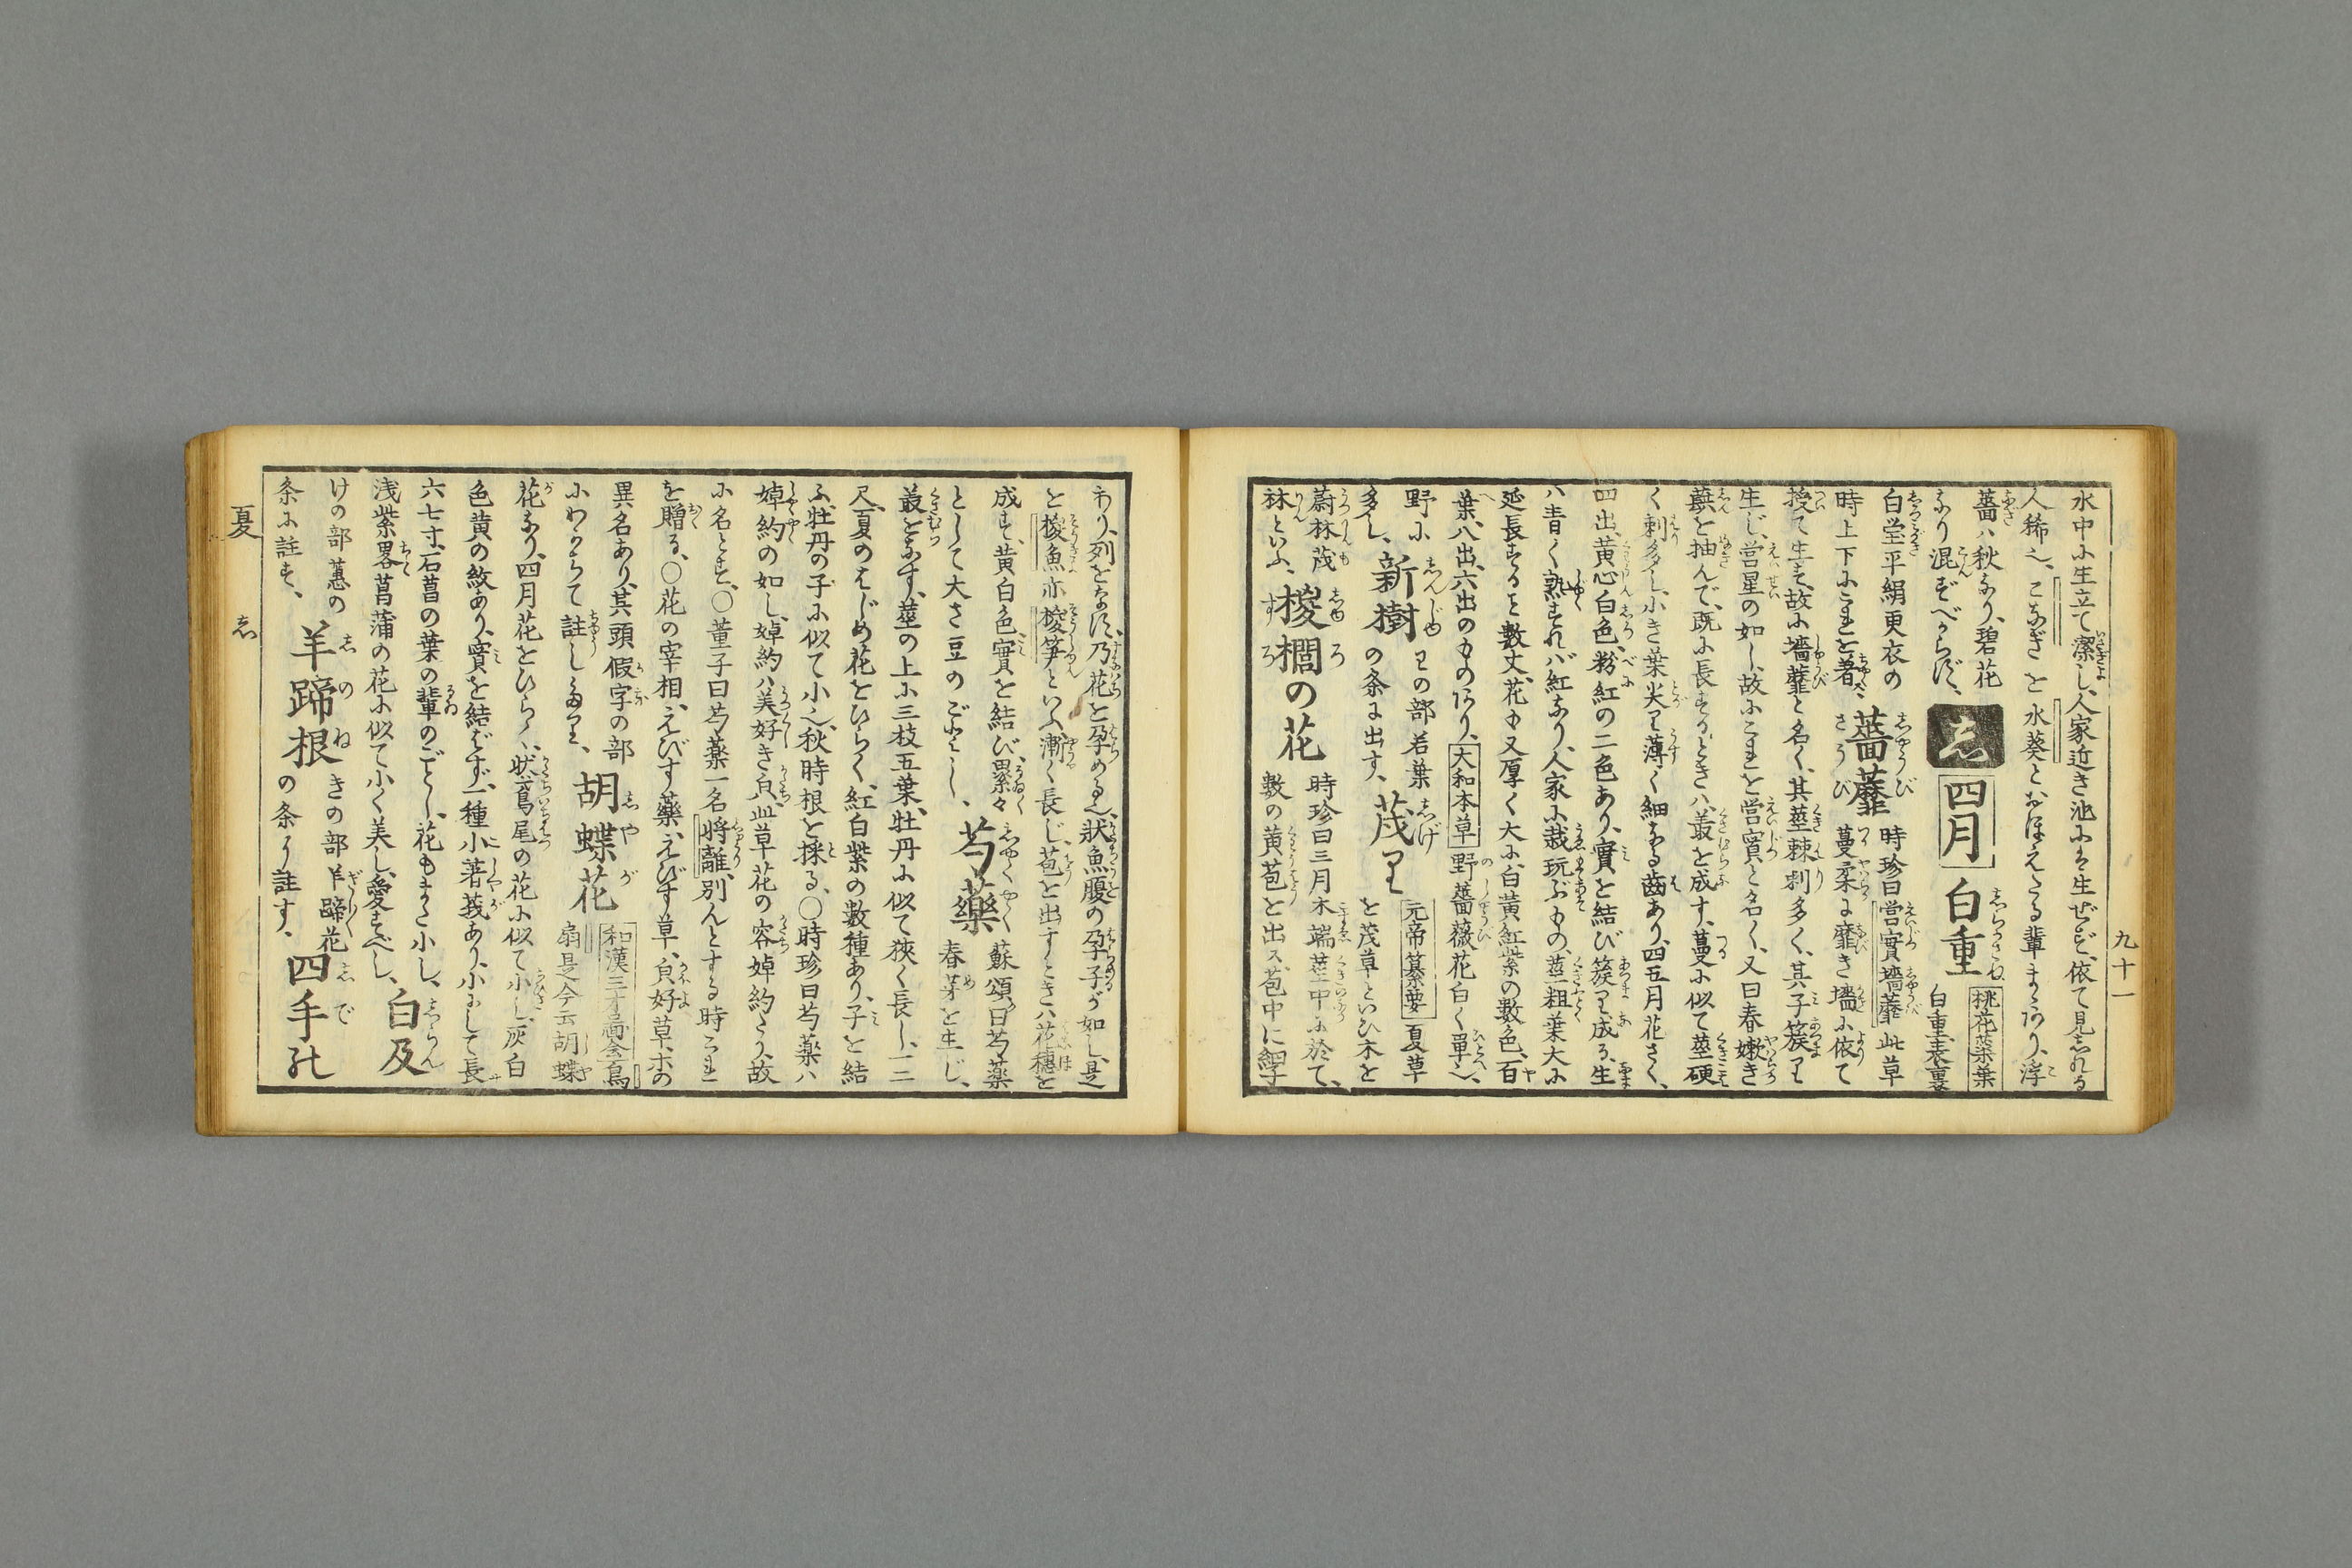 九十一
水中に生立て潔し、人家近き池には生ぜず、依て見しれる
人稀也、こなぎと水葵とおぼえたる輩まゝあり、浮
薔ハ秋なり、碧花
なり混ずべからず、
ゑ
四月
白重
桃花蘂葉
白重表裏
白堂平絹更衣の
時上下にこれを著ス、
薔蘼
時珍曰営實墻蘼此草
蔓柔に靡き墻に依て
援て生ず、故に墻蘼と名く、其莖棘刺多く、其子簇り
生じ、営星の如し、故にこれを営實と名く、又曰春嫩き
蕻を抽んで、既に長ずるときハ叢を成す、蔓に似て莖硬
く刺多し、小き葉尖り薄く細なる齒あり、四五月花さく、
四出、黄心白色、粉紅の二色あり、實を結び簇り成る、生
ハ青く熟すれバ紅なり、人家に栽玩ぶもの、莖粗葉大に
延長すると數丈、花も又厚く大に、白黄紅紫の數色、百
葉、八出、六出のものあり、大和本草野薔薇花白く單也、
野に
多し、
新樹
わの部若葉
の条に出す、
茂り
元帝纂要夏草
を茂草といひ木を
蔚林茂
林といふ、
椶櫚の花
時珍曰三月木端莖中に於て、
數の黄苞を出ス、苞中に細子
あり、列をなす、乃花を孕める也、狀魚腹の孕子が如し、是
を椶魚亦椶笋といふ、漸く長じ、苞を出すときハ花穗を
成す、黄白色、實を結び、累々
として大さ豆のごとし、
芍藥
蘇頌曰芍藥
春芽を生じ、
叢をなす、莖の上に三枝五葉、牡丹に似て狹く長し、一二
尺、夏のはじめ花をひらく、紅白紫の數種あり、子を結
ぶ、牡丹の子に似て小也、秋時根を採る、○時珍曰芍藥ハ
婥約の如し、婥約ハ美好き㒵、此草花の容婥約たり、故
に名とす、○董子曰芍藥一名将離、別んとする時これ
を贈る、○花の宰相、えびす藥、えびす草、㒵好草、ホの
異名あり、其頭假字の部
にわかちて註しぬれり、
胡蝶花
和漢三才圖会烏
扇是今云胡蝶
花なり、四月花をひらく、状鳶尾の花に似て小し、灰白
色黄の紋あり、實を結ばず、一種小著莪あり、小にして長
六七寸、石菖の葉の輩のごとし、花もまた小し、
浅紫畧菖蒲の花に似て小く美し、愛すべし、
白及
けの部蕙の
条に註す、
羊蹄根
きの部羊蹄花
の条に註す、
四手れ
夏
ゑ